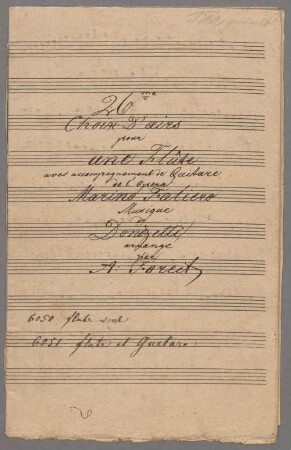 26me
Choix D'airs
pour
une Flûte
avec accompagnement de Guitare
de l'Opera
Marino Faliero
Musique
de
Donizetti
arrangé
par
A. Foreit
6050 flute seul
6051 flute et Guetare